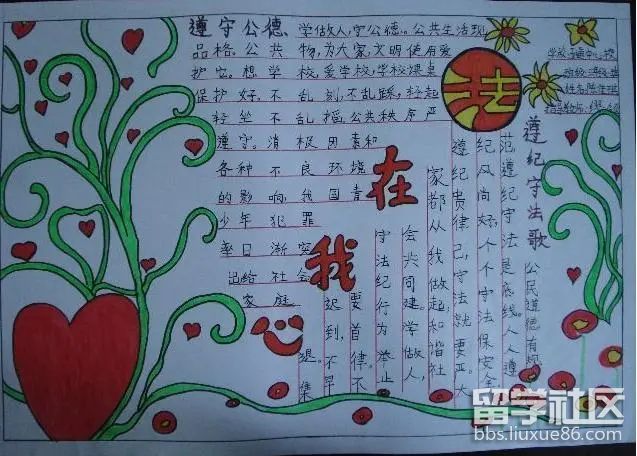 遵守公德
学做人,守公德。公共生活现
品格。公共物,为大家,文明使用爱
护它。想学校,爱学校,学校课桌
保护好。不乱刻,不乱踩,轻起
轻坐不乱摇,公共秩序严
遵守。消极因素和
各种不良环境
的影响,我国青
少年犯罪
率日渐突
出给社会
家庭
法
在
我
心
遵纪守法歌
公民道德有规
范遵纪守法是底线。人人遵
纪风尚好,个个守法保安全
遵纪贵律己,守法就要严
家都从我做起,和谐社
会共同建。学做人,
守法纪行为举止
要首律。不
迟到,不早
退。集
留学社区
bbs.liuxue86.com